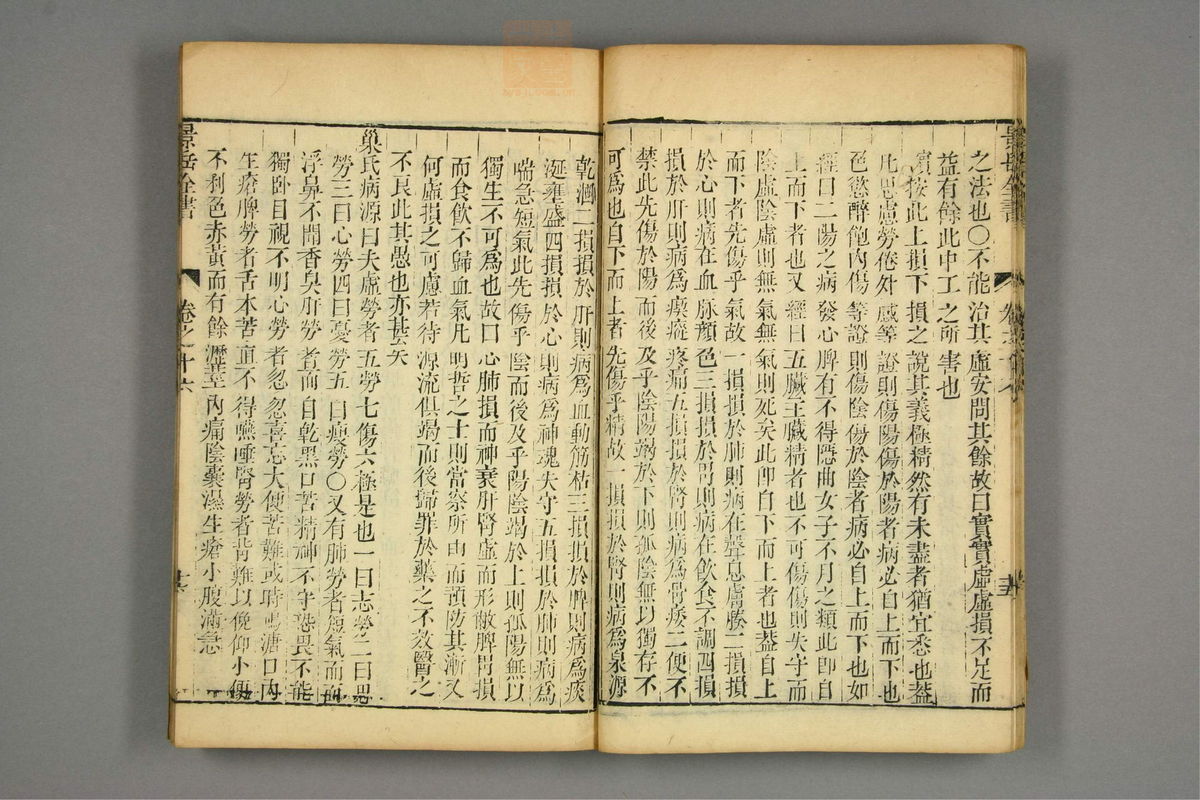 之法也○不能治其虛安問其餘故曰實實虛虛損不足而
益有餘此中工之所害也
按此上損下損之說其義極精然有未盡者猶宜悉也蓋
凡思慮勞倦外感等證則傷陽傷於陽者病必自上而下也
色慾醉飽內傷等證則傷陰傷於陰者病必自上而下也如
經曰二陽之病發心脾有不得隱曲女子不月之類此卽自
上而下者也又經曰五臟主臟精者也不可傷傷則失守而
陰虛陰虛則無氣無氣則死矣此卽自下而上者也蓋自上
而下者先傷乎氣故一損損於肺則病在聲息膚腠二損損
於心則病在血脉顏色三損損於胃則病在飲食不調四損
損於肝則病爲瘈瘲疼痛五損損於腎則病爲骨痿二便不
禁此先傷於陽而後及乎陰陽竭於下則孤陰無以獨存不
可爲也自下而上者先傷乎精故一損損於腎則病爲泉源
乾涸二損損於肝則病爲血動筋枯三損損於脾則病爲痰
涎壅盛四損損於心則病爲神魂失守五損損於肺則病爲
喘急短氣此先傷乎陰而後及乎陽陰竭於上則孤陽無以
獨生不可爲也故曰心肺損而神衰肝腎虛而形敝脾胃損
而食飲不歸血氣凡明哲之士則當察所由而預防其漸又
何虛損之可慮若待源流俱竭而後歸罪於藥之不效醫之
不良此其愚也亦甚矣
巢氏病源曰夫虛勞者五勞七傷六極是也一曰志勞二曰思
勞三曰心勞四曰憂勞五曰瘦勞○又有肺勞者短氣而面
浮鼻不聞香臭肝勞者面目乾黑口苦精神不守恐畏不能
獨臥目視不明心勞者忽忽喜忘大便苦難或時鴨溏口內
生瘡脾勞者舌本苦直不得嚥唾腎勞者背難以俛仰小便
不利色赤黃而有餘瀝莖內痛陰囊濕生瘡小腹滿急
景岳全書
卷之十六